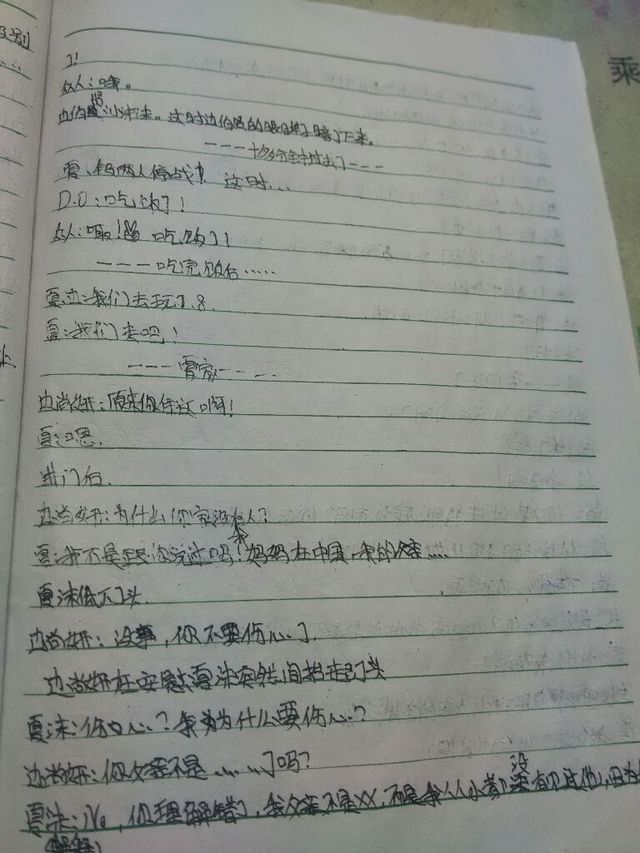 了!
众人:哦。
边伯贤:小沫沫。这时边伯贤的眼眸暗了下来。
---十多分钟过去了---
两人停战! 这时...
D.O:吃饭了!
众人:哦! 吃饭了!
---吃完饭后.....
夏:我们去玩了.
夏:我们走吧!
---夏家---
边尚妍:原来你住这啊!
夏:嗯.
进门后.
边尚妍:为什么你家没有人?
夏:我不是跟你说过吗!妈妈在中国,我的爸爸....
夏沫低下了头.
边尚妍:没事,你不要伤心了.
边尚妍在安慰夏沫突然间抬起了头
夏沫:伤心?我为什么要伤心?
边尚妍:你父亲不是......了吗?
夏沫:No,你理解错了,我父亲不是XX,而是我从小就没有见过他,因为
乘